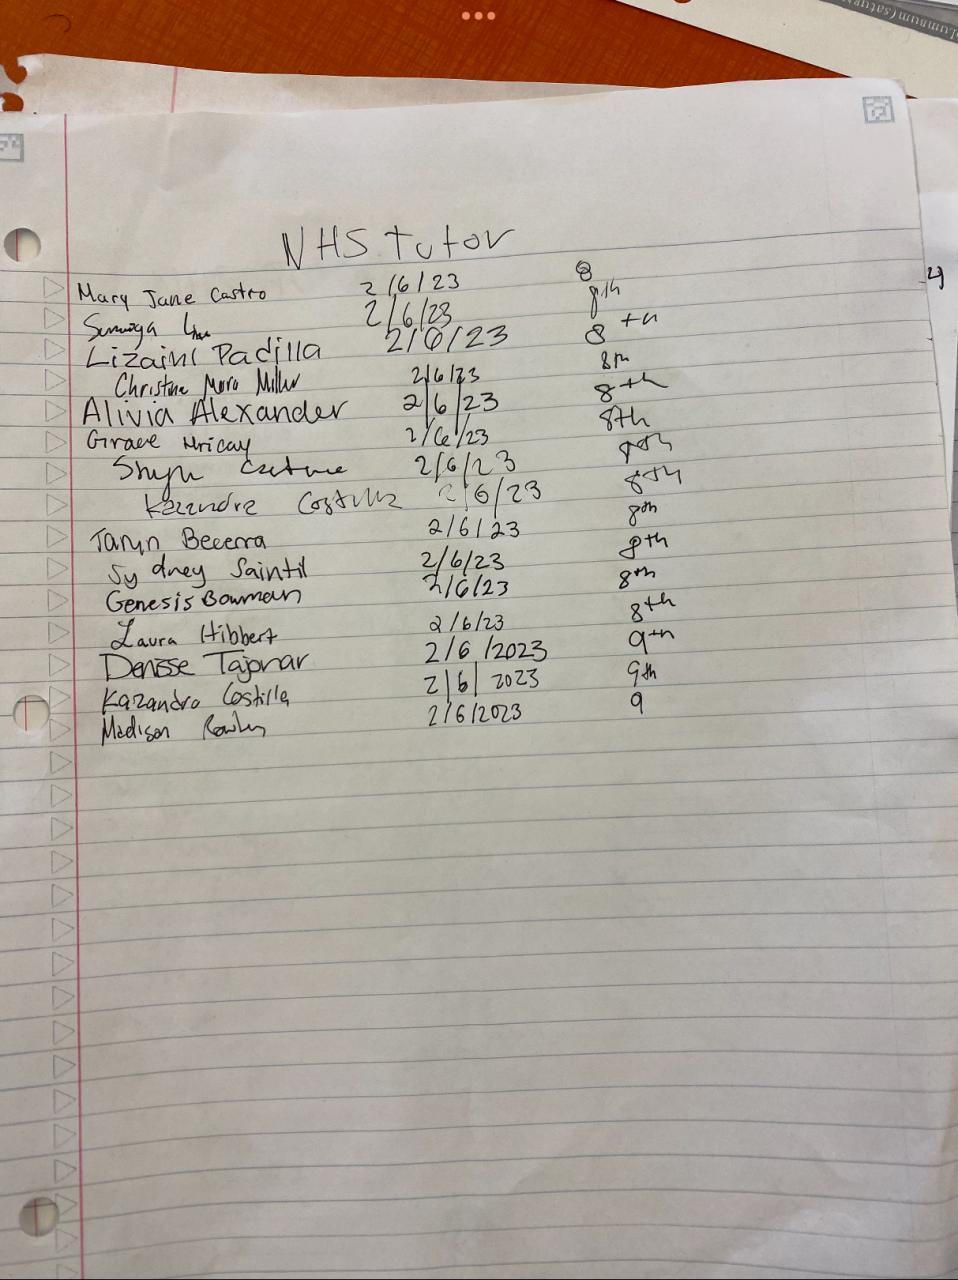 NHS Tutor
Mary Jane Castro 2/6/23 8
2/6/23 8th
Lizaini Padilla 2/6/23 8th
Christine Moro Miller 2/6/23 8th
Alivia Alexander 2/6/23 8th
Grace 2/6/23 8th
2/6/23 8th
Kazandra Costilla 2/6/23 8th
Taryn Becerra 2/6/23 8th
Sydney Saintil 2/6/23 8th
Genesis Bowman 2/6/23 8th
Laura Hibbert 2/6/23 8th
Denisse Tajonar 2/6/2023 9th
Kazandra Costilla 2/6/2023 9th
Madison 2/6/2023 9